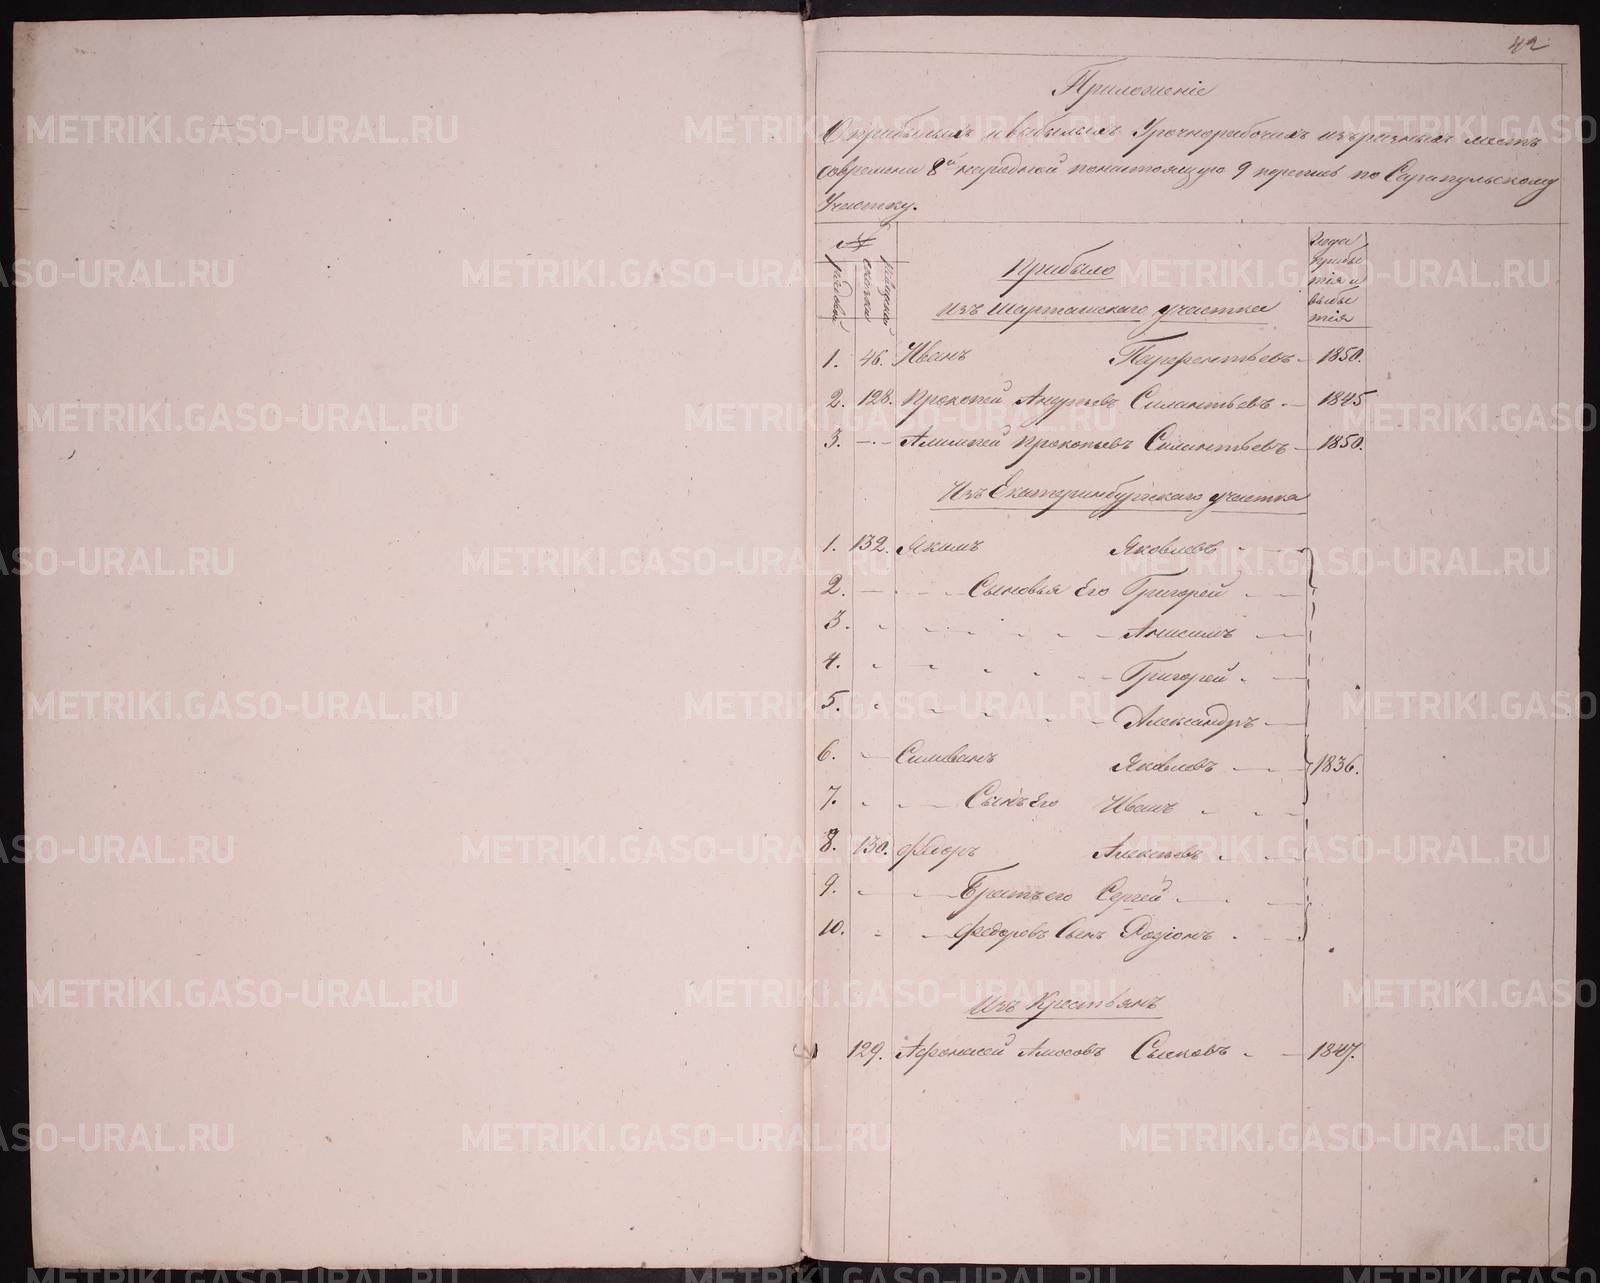 42
Приложеніе
О прибылыхъ и выбылыхъ Урочнорабочихъ изъ разныхъ местъ
современи 8й народной понастоящую 9 перепись по Сарапульскому
Участку.
№
рядовой
ревизской сказки
Прибыло
Изъ Шарташскаго участка
Года прибы
тія и
выбы
тія
1. 46. Иванъ Парфентьевъ 1850.
2. 128. Прокопей Андреевъ Силантьевъ 1845
3. Алимпей Прокопьевъ Силантьевъ 1850.
Изъ Екатеринбургскаго участка
1. 132. Якимъ Яковлевъ
2. Сыновья Его Григорей
3. Анисимъ
4. Григорей
5. Александръ
6. Силиванъ Яковлевъ 1836.
7. Сынъ Его Иванъ
8. 130. Федоръ Алексеевъ
9. Братъ его Сергей
10. Федоровъ Сынъ Родіонъ
Изъ Крестьянъ
1 129. Афонасей Амосовъ 1847.
METRIKI.GASO-URAL.RU